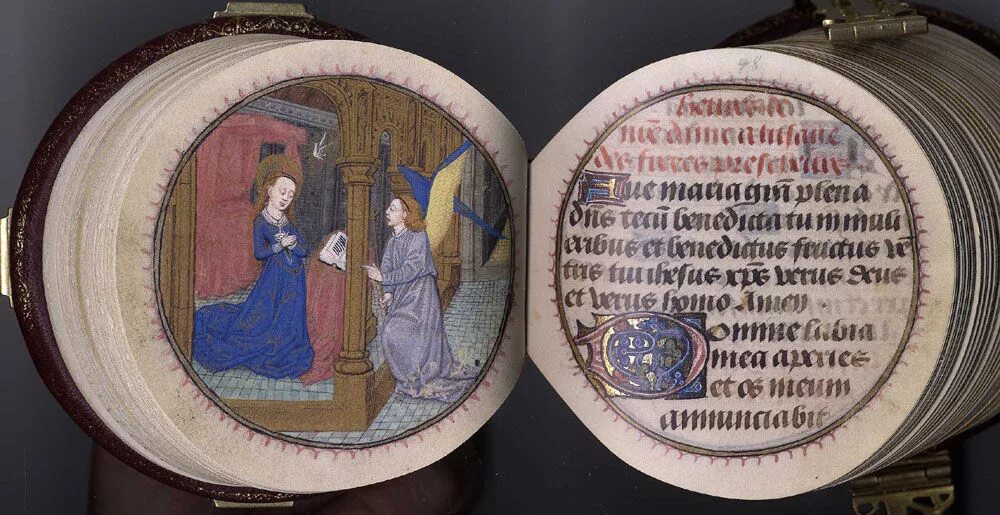 dame a lusaige
des freres prescheurs
Aue maria grã plena
dñs tecũ benedicta tu in muli
eribus et benedictus fructus vẽ
tris tui ihesus xp̃s verus deus
et verus homo. Amen.
Domine labia
mea aperies
et os meum
annunciabit